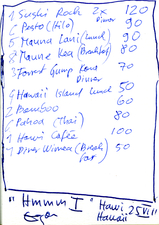 1 Sushi Rock 2x 120
Dinner
6 Pesto (Hilo) 90
5 Mauna Lani (Lunch) 90
8 Mauna Kea (Breakfast) 80
3 Forrest Gump Kona 70
Dinner
4 Hawaii Island Lunch 50
2 Bamboo 60
2 Pahoa (Thai) 80
1 Hawi Coffee 100
1 Diner Wimea (Break 50
fast)
"Hmmm I" Hawi 25 VIII
Hawaii